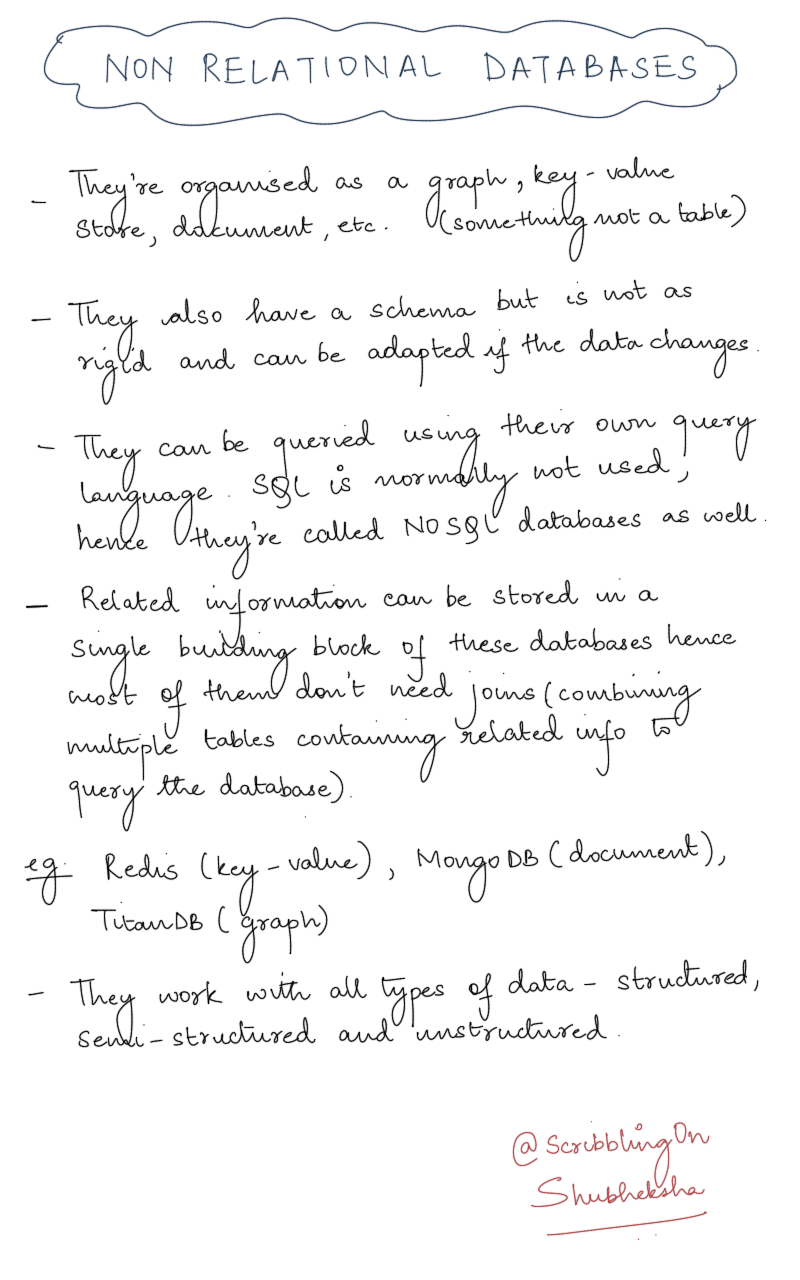 NON RELATIONAL DATABASES
- They're organised as a graph, key-value
store, document, etc. (something not a table)
- They also have a schema but is not as
rigid and can be adapted if the data changes.
- They can be queried using their own query
language. SQL is normally not used,
hence they're called NOSQL databases as well.
- Related information can be stored in a
single building block of these databases hence
most of them don't need joins (combining
multiple tables containing related info to
query the database).
eg. Redis (key-value), MongoDB (document),
TitanDB (graph)
- They work with all types of data - structured,
semi-structured and unstructured.
@ScribblingOn
Shubheksha